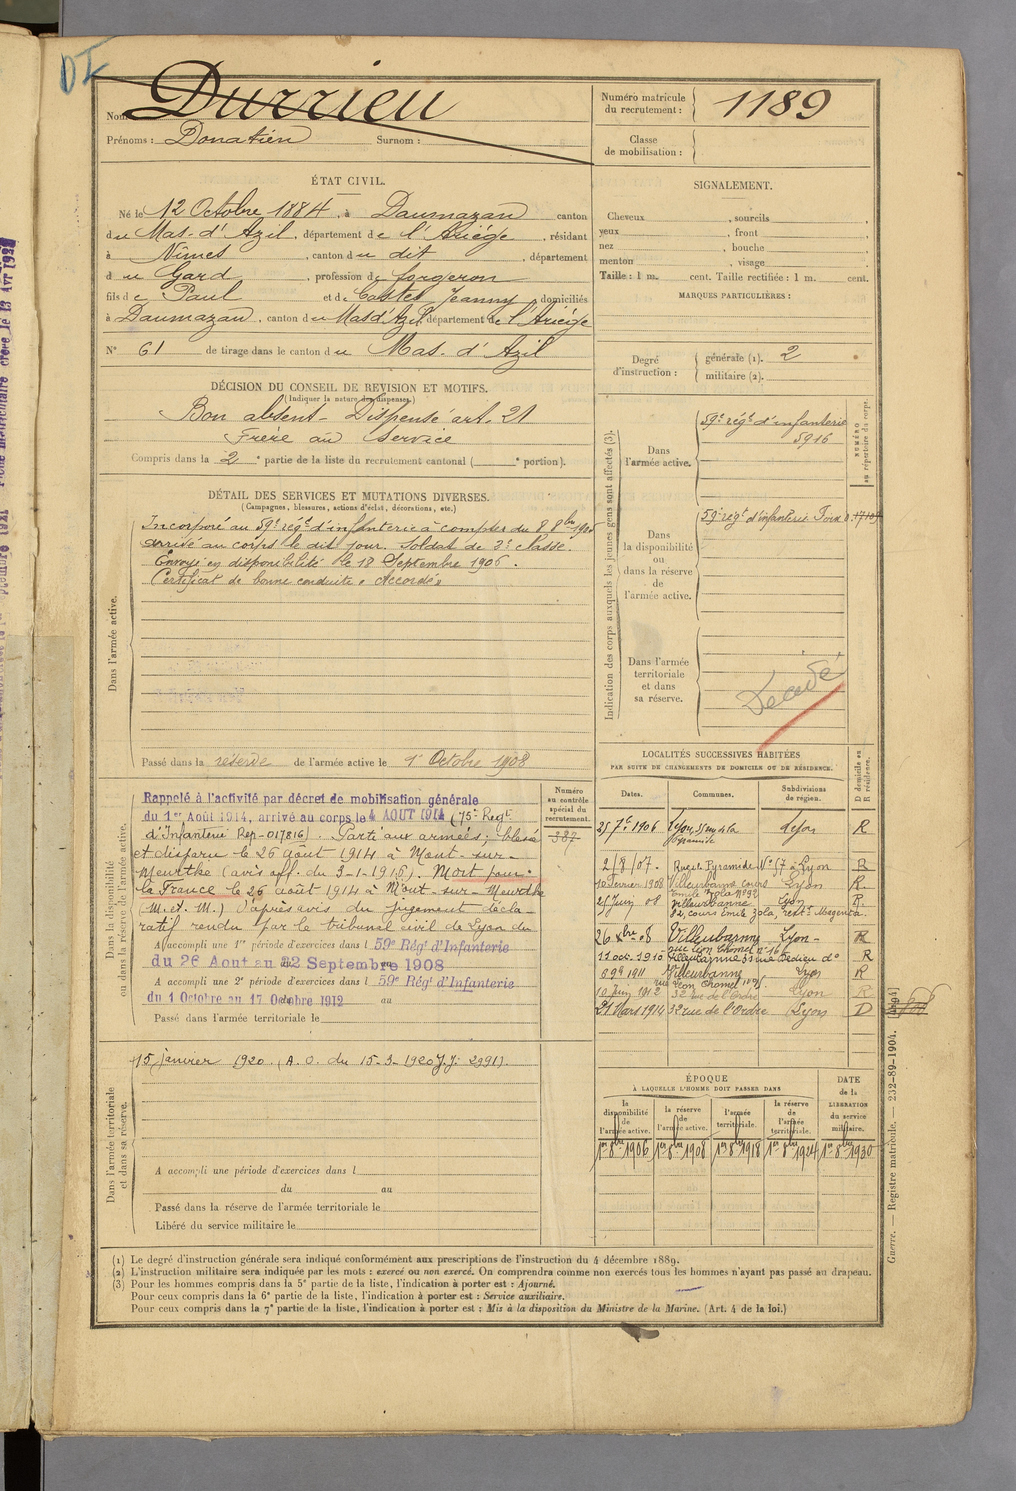 DI
Nom : Durrieu
Prénoms : Donatien Surnom :
Numéro matricule
du recrutement : 1189
Classe
de mobilisation :
ÉTAT CIVIL.
Né le 12 Octobre 1884, à Daumazan canton
du Mas-d'Azil, département de l'Ariège, résidant
à Nîmes, canton du dit, département
du Gard, profession de forgeron
fils de Paul et de Castes Jeanny domiciliés
à Daumazan, canton du Mas d'Azil, département de l'Ariège
N° 61 de tirage dans le canton du Mas-d'Azil
DÉCISION DU CONSEIL DE REVISION ET MOTIFS.
(Indiquer la nature des dispenses.)
Bon absent - Dispensé art. 21
Frère au service
Compris dans la 2e partie de la liste du recrutement cantonal ( e portion).
DÉTAIL DES SERVICES ET MUTATIONS DIVERSES.
(Campagnes, blessures, actions d'éclat, décorations, etc.)
Dans l'armée active.
Incorporé au 59e régt d'infanterie à compter du 8 8bre 1905
arrivé au corps le dit jour. Soldat de 2e classe.
Envoyé en disponibilité le 18 Septembre 1906.
Certificat de bonne conduite « Accordé »
Passé dans la réserve de l'armée active le 1er Octobre 1908
Dans la disponibilité
ou dans la réserve de l'armée active.
Rappelé à l'activité par décret de mobilisation générale
du 1er Août 1914, arrivé au corps le 4 AOUT 1914 (75e Régt
d'Infanterie Rep-017816). Parti aux armées; blessé
et disparu le 26 août 1914 à Mont-sur-
Meurthe (avis off. du 3-1-1916). Mort pour
la France le 26 août 1914 à Mont-sur-Meurthe
(M. et M.) D'après avis du jugement décla-
ratif rendu par le tribunal civil de Lyon du
A accompli une 1re période d'exercices dans l 59e Régt d'Infanterie
du 26 Aout au 22 Septembre 1908
A accompli une 2e période d'exercices dans l 59e Régt d'Infanterie
du 1 Octobre au 17 Octobre 1912
Passé dans l'armée territoriale le
Numéro
au contrôle
spécial du
recrutement.
387
Dans l'armée territoriale
et dans sa réserve.
15 janvier 1920. (A. O. du 15-3-1920 J.J. 2991).
A accompli une période d'exercices dans l
du au
Passé dans la réserve de l'armée territoriale le
Libéré du service militaire le
SIGNALEMENT.
Cheveux , sourcils ,
yeux , front ,
nez , bouche ,
menton , visage
Taille : 1 m. cent. Taille rectifiée : 1 m. cent.
MARQUES PARTICULIÈRES :
Degré
d'instruction :
générale (1). 2
militaire (2).
Indication des corps auxquels les jeunes gens sont affectés (3).
Dans
l'armée active.
59e régt d'infanterie
5916
NUMÉRO
au répertoire du corps.
Dans
la disponibilité
ou
dans la réserve
de
l'armée active.
59e régt d'infanterie Foix
Dans l'armée
territoriale
et dans
sa réserve.
Décédé
LOCALITÉS SUCCESSIVES HABITÉES
PAR SUITE DE CHANGEMENTS DE DOMICILE OU DE RÉSIDENCE.
Dates. Communes. Subdivisions
de région.
D domicile ou
R résidence.
25 7bre 1906 Lyon, Lyon R
2/8/07. Rue St Pyramide N° 57 à Lyon R
10 Fevrier 1908 Villeurbanne cours Lyon R.
Emile Zola N° 92
25 Juin 08 Villeurbanne Lyon R.
82, cours Emile Zola, Magenta.
26 Xbre 08 Villeurbanne Lyon - R
rue Léon Chomel n° 16
11 oct. 1910 Villeurbanne rue Dedieu do R
1911 Villeurbanne Lyon R
rue Léon Chomel
10 Juin 1912 32 rue de l'Ordre Lyon R
21 Mars 1914 32 rue de l'Ordre Lyon D
ÉPOQUE
À LAQUELLE L'HOMME DOIT PASSER DANS
DATE
de la
LIBÉRATION
du service
militaire.
la
disponibilité
de
l'armée active.
la réserve
de
l'armée active.
l'armée
territoriale.
la réserve
de
l'armée
territoriale.
1er 8bre 1906 1er 8bre 1908 1er 8bre 1918 1er 8bre 1924 1er 8bre 1930
(1) Le degré d'instruction générale sera indiqué conformément aux prescriptions de l'instruction du 4 décembre 1889.
(2) L'instruction militaire sera indiquée par les mots : exercé ou non exercé. On comprendra comme non exercés tous les hommes n'ayant pas passé au drapeau.
(3) Pour les hommes compris dans la 5e partie de la liste, l'indication à porter est : Ajourné.
Pour ceux compris dans la 6e partie de la liste, l'indication à porter est : Service auxiliaire.
Pour ceux compris dans la 7e partie de la liste, l'indication à porter est : Mis à la disposition du Ministre de la Marine. (Art. 4 de la loi.)
Guerre. — Registre matricule. — 232-89-1904. [3904]